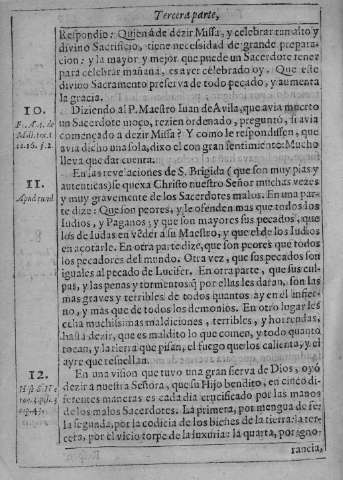 Tercera parte,
Respondio: Quien à de dezir Missa, y celebrar tan alto y
divino Sacrificio, tiene necessidad de grande prepara-
cion: y la mayor y mejor que puede un Sacerdote tener
para celebrar mañana, es aver celebrado oy. Que este
divino Sacramento preserva de todo pecado, y aumenta
la gracia.
10.
Diziendo al P. Maestro Iuan de Avila, que avia muerto
un Sacerdote moço, rezien ordenado, preguntó, si avia
començado a dezir Missa? Y como le respondiessen, que
avia dicho una sola, dixo el con gran sentimiento: Mucho
lleva que dar cuenta.
11.
Apud eund.
En las revelaciones de S. Brigida (que son muy pias y
autenticas) se quexa Christo nuestro Señor muchas vezes
y muy gravemente de los Sacerdotes malos. En una par-
te dize: Que son peores, y le ofenden mas que todos los
Iudios, y Paganos; y que son mayores sus pecados, que
los de Iudas en vender a su Maestro, y que el de los Iudios
en acotarle. En otra parte dize, que son peores que todos
los pecadores del mundo. Otra vez, que sus pecados son
iguales al pecado de Lucifer. En otra parte, que sus cul-
pas, y las penas y tormentos q̃ por ellas les daran, son las
mas graves y terribles de todos quantos ay en el infier-
no, y más que de todos los demonios. En otro lugar les
echa muchissimas maldiciones, terribles, y horrendas,
hasta dezir, que es maldito lo que comen, y todo quanto
tocan, y la tierra que pisan, el fuego que los calienta, y el
ayre que resuellan.
12.
En una vision que tuvo una gran sierva de Dios, oyó
dezir a nuestra Señora, que su Hijo bendito, en cinco di-
ferentes maneras es cada dia crucificado por las manos
de los malos Sacerdotes. La primera, por mengua de fe:
la segunda, por la codicia de los bienes de la tierra: la ter-
cera, por el vicio torpe de la luxuria: la quarta, por igno-
rancia,